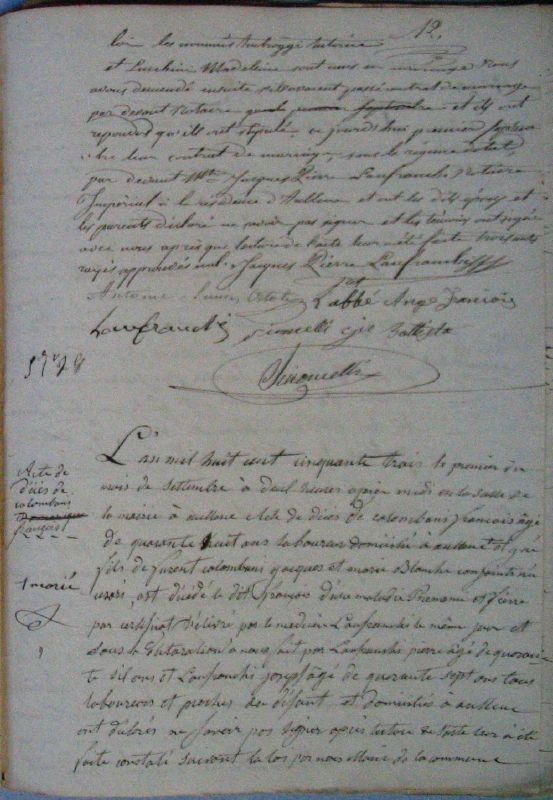 12.
loi les nommés Ambroggi Antoine
et Lucchini Madeleine sont unis en mariage Nous
avons demandé ensuite s'ils avaient passé contrat de mariage
par devant Notaire et ils ont
repondus qu'ils ont stipulé ce jourd'hui premier Septem
bre leur contrat de mariage, sous le régime dotal,
par devant Mtre Jacques Pierre Lanfranchi Notaire
Impérial à la résidence d'Aullene et ont les dits époux et
les parents déclaré ne savoir pas signer et les témoins ont signé
avec nous après que lecture de l'acte leur a été faite trois mots
rayés approuvés nul. Jacques Pierre Lanfranchi
Antoine Labbé Ange François
Lanfranchi Simonetti Gio Battista
Simonetti
L'an mil huit cent cinquante trois le premier du
mois de Settembre à deux heures après midi en la salle de
la mairie à aullene Acte de décès de colombani françois âgé
de quarante huit ans laboureur domicilié à aullene et né
fils de furent colombani jacques et marie Blanche conjoints
est décédé le dit françois d'une maladie
par certificat délivré par le medecin Lanfranchi le même jour et
sous la déclaration à nous fait par Lanfranchi pierre âgé de quaran
te six ans et Lanfranchi joseph âgé de quarante sept ans tous
laboureurs et proches du défunt et domiciliés à aullene
ont déclarés ne savoir pas signer après lecture de l'acte leur a été
faite constaté suivant la loi par nous Maire de la commune
Acte de
décès de
colombani
françois
1 marié